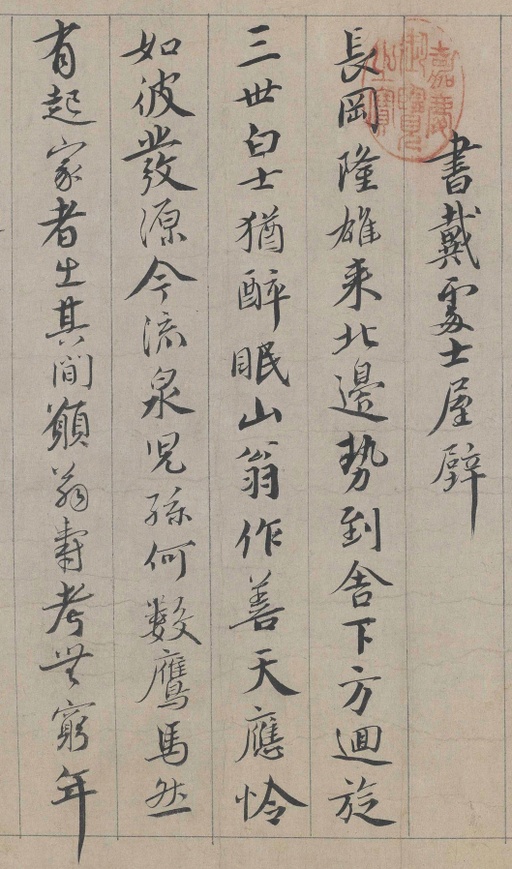 嘉慶御覽之寶
書戴處士屋壁
長岡隆雄来北邊勢到舍下方迴旋
三世白士猶醉眠山翁作善天應憐
如彼發源今流泉兒孫何數鷹馬然
有起家者出其間願翁壽考無窮年